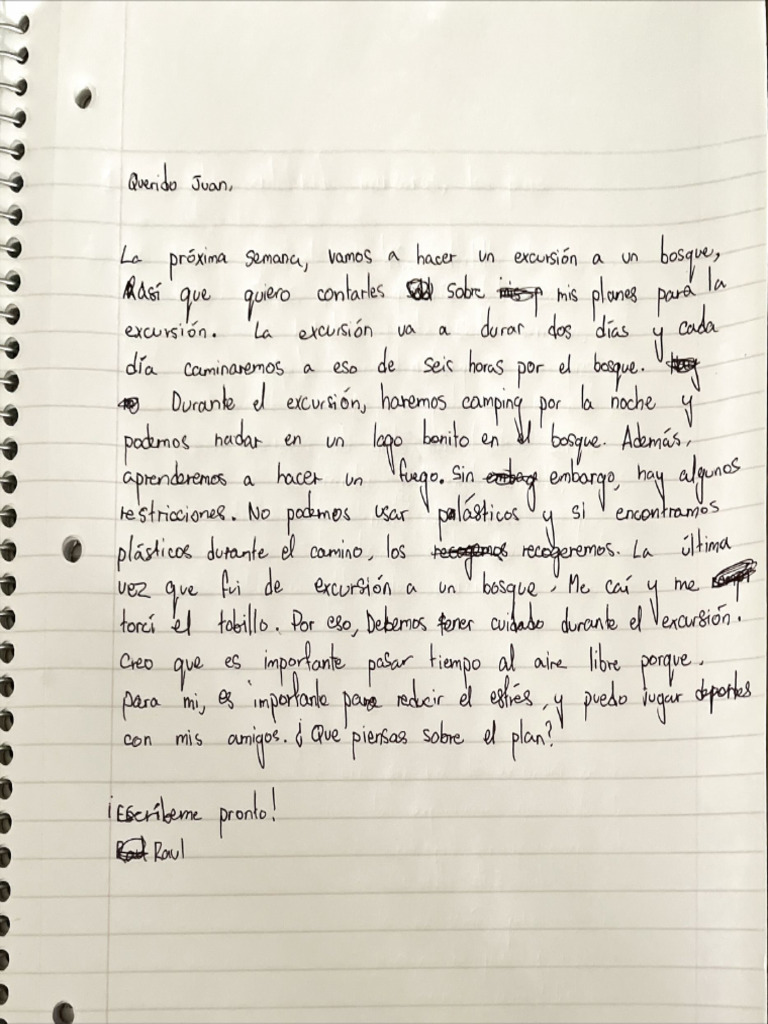 Querido Juan,
La próxima semana, vamos a hacer un excursión a un bosque,
Así que quiero contarles sobre mis planes para la
excursión. La excursión va a durar dos días y cada
día caminaremos a eso de seis horas por el bosque.
Durante el excursión, haremos camping por la noche y
podemos nadar en un lago bonito en el bosque. Además,
aprenderemos a hacer un fuego. Sin embargo, hay algunos
restricciones. No podemos usar plásticos y si encontramos
plásticos durante el camino, los recogeremos. La última
vez que fui de excursión a un bosque, Me caí y me
torcí el tobillo. Por eso, Debemos tener cuidado durante el excursión.
Creo que es importante pasar tiempo al aire libre porque,
para mi, es importante para reducir el estrés, y puedo jugar deportes
con mis amigos. ¿Que piensas sobre el plan?
¡Escríbeme pronto!
Raul